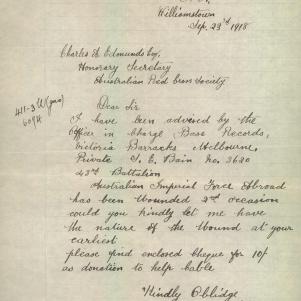 Williamstown
Sep. 23rd 1918
Charles A Edmunds Esq.
Honorary Secretary
Australian Red Cross Society
Dear Sir
I have been advised by the
Officer in Charge Base Records,
Victoria Barracks Melbourne,
Private J. E. Bain No. 3640
43rd Battalion
Australian Imperial Force Abroad
has been Wounded 2nd occasion
could you kindly let me have
the nature of the Wound at your
earliest
please find enclosed cheque for 10/-
as donation to help cable
Kindly Oblidge